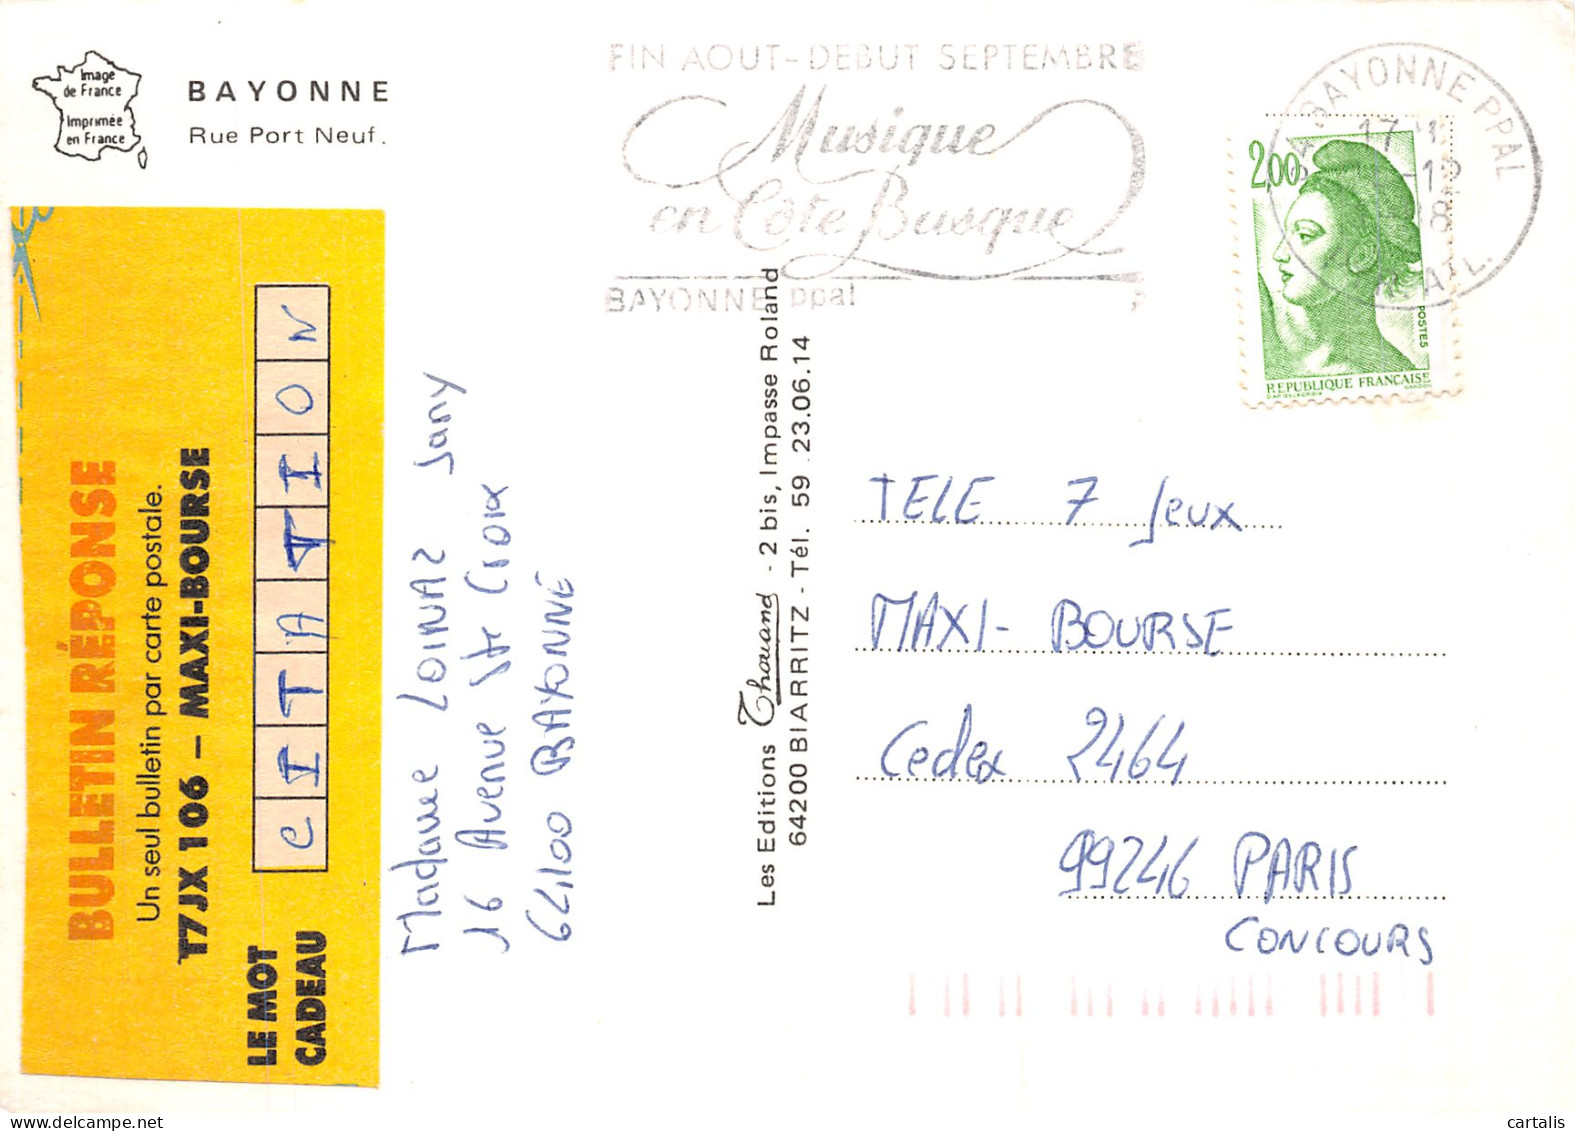 Image
de France
Imprimée
en France
BAYONNE
Rue Port Neuf.
FIN AOUT-DEBUT SEPTEMBRE
Musique
en Côte Basque
BAYONNE ppal
BAYONNE PPAL
17 H
-12
ATL.
2,00
POSTES
REPUBLIQUE FRANÇAISE
D'AP. DELACROIX
GANDON
BULLETIN RÉPONSE
Un seul bulletin par carte postale.
T7JX 106 – MAXI-BOURSE
LE MOT
CADEAU
CITATION
Madame LOINAZ Jany
16 Avenue Ste Croix
64100 BAYONNE
Les Editions Thouand - 2 bis, Impasse Roland
64200 BIARRITZ - Tél. 59 .23.06.14
TELE 7 Jeux
MAXI- BOURSE
Cedex 2464
99246 PARIS
CONCOURS
cartalis